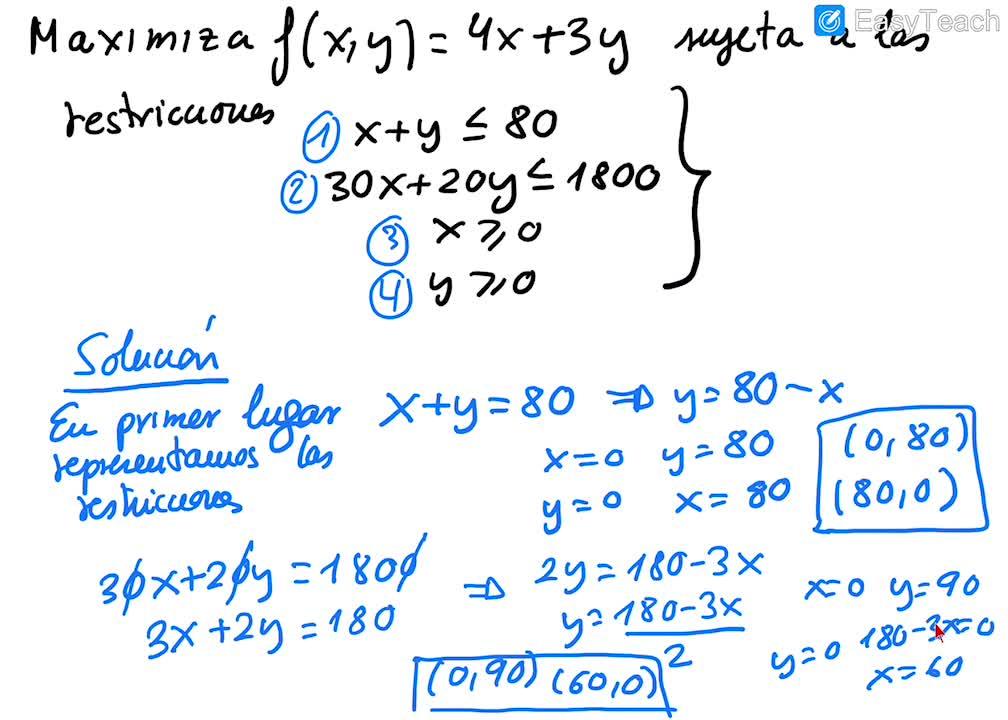 EasyTeach
Maximiza f(x,y) = 4x+3y sujeta a las
restricciones
① x+y ≤ 80
② 30x+20y ≤ 1800
③ x ≥ 0
④ y ≥ 0
Solución
En primer lugar
representamos las
restricciones
x+y = 80 ⇒ y = 80 − x
x=0 y=80
y=0 x=80
(0,80)
(80,0)
30x+20y = 1800
3x+2y = 180
⇒ 2y = 180−3x
y = 180−3x / 2
x=0 y=90
y=0 180−3x=0
x=60
(0,90) (60,0)